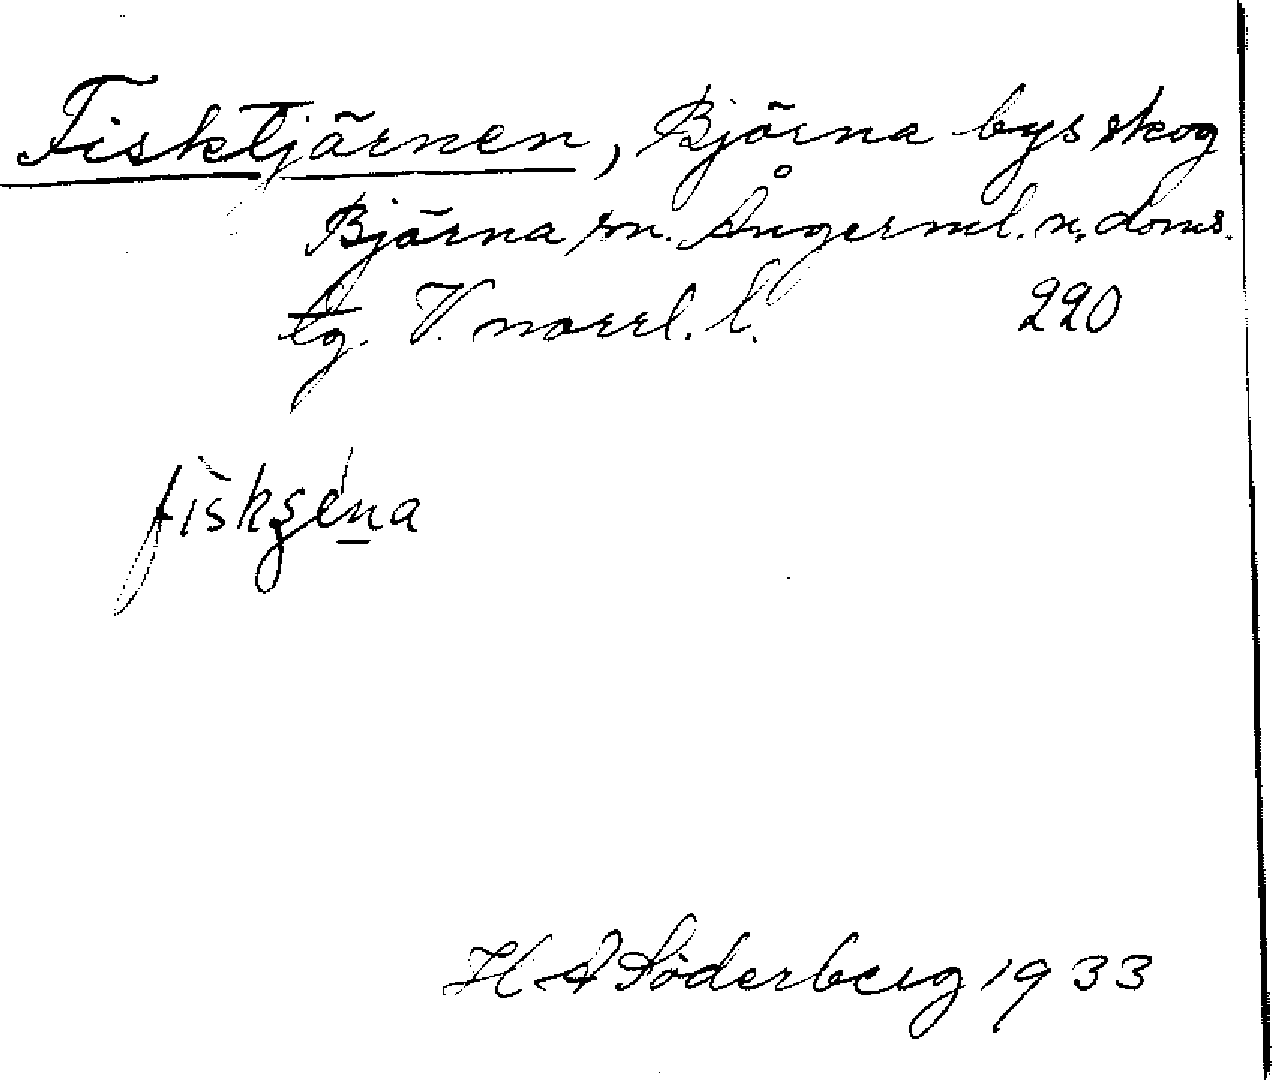 Fisktjärnen, Björna bys skog
Björna sn. Ångerml. n. doms.
tg. V. norrl. l. 220
fìskʂéna
H A Söderberg 1933